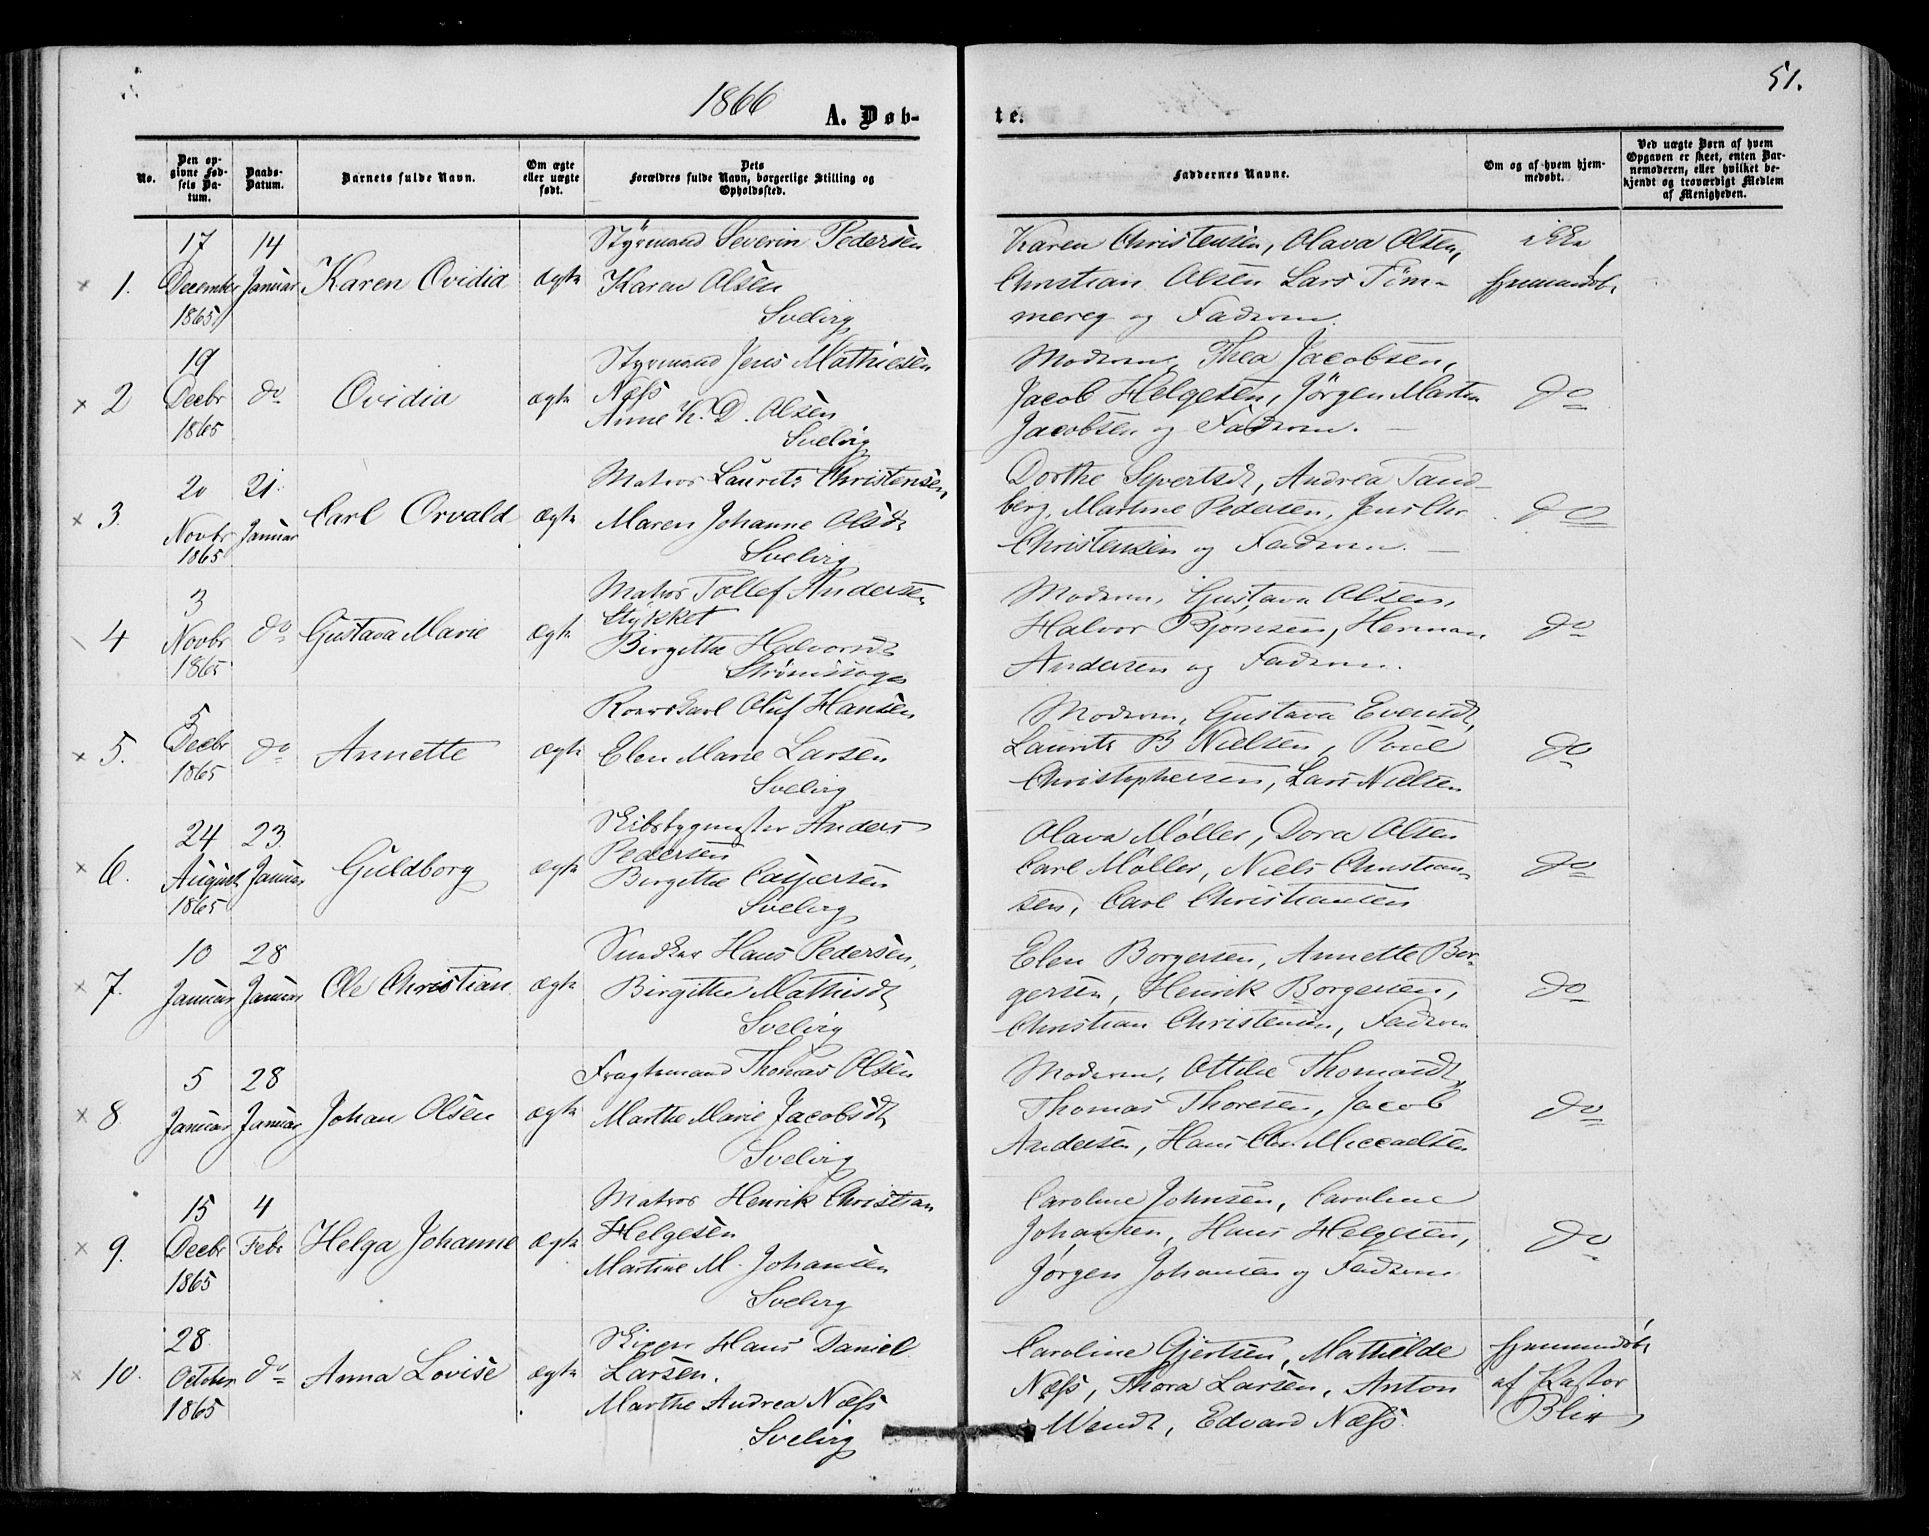 1866
51.
A. Døb-
te.
No.
Den op-
givne Fød-
sels Da-
tum.
Daabs-
Datum.
Barnets fulde Navn.
Om ægte
eller uægte
født.
Dets
Forældres fulde Navn, borgerlige Stilling og
Opholdssted.
Faddernes Navne.
Om og af hvem hjem-
medøbt.
Ved uægte Børn af hvem
Opgaven er skeet, enten Bar-
nemoderen, eller hvilket be-
kjendt og troværdigt Medlem
af Menigheden.
1.
17
December
1865
14
Januar
Karen Ovidia
ægte
Styrmand Severin Pedersen
Karen Olsen
Svelvig
Karen Christensen, Olava Olsen,
Christian Olsen Lars Tøm-
mereg og Faderen.
ikke
hjemmedøbt
2
19
Decbr
1865
do
Ovidia
ægte
Styrmand Jens Mathiesen
Næss
Anne K. D. Olsen
Svelvig
Moderen, Thea Jacobsen,
Jacob Helgesen, Jørgen Martin
Jacobsen og Faderen.
do
3.
20
Novbr
1865
21
Januar
Carl Orvald
ægte
Matros Laurits Christensen,
Maren Johanne Olsdt
Svelvig
Dorthe Syvertsdt, Andrea Tand-
berg, Martine Pedersen, Jens Chr
Christensen og Faderen.
do
4
3
Novbr
1865
do
Gustava Marie
ægte
Matros Tollef Andersen
Stykket
Birgithe Halvorsdt
Strømsoge
Moderen, Gustava Olsen,
Halvor Bjørnsen, Herman
Andersen og Faderen.
do
5.
5
Decbr
1865
do
Annette
ægte
Roerskarl Oluf Hansen
Elen Marie Larsen
Svelvig
Moderen, Gustava Evensdt,
Laurits B Nielsen, Poul
Christophersen, Lars Nielsen
do
6.
24
August
1865
23
Januar
Guldborg
ægte
Skibsbygmester Anders
Pedersen
Birgithe Caspersen
Svelvig
Olava Møller, Dora Olsen
Carl Møller, Niels Christian-
sen, Carl Christiansen
do
7.
10
Januar
28
Januar
Ole Christian
ægte
Snedker Hans Pedersen,
Birgithe Mathisdt
Svelvig
Elen Borgersen, Annette Bor-
gersen, Henrik Borgersen,
Christian Christensen, Faderen
do
8
5
Januar
28
Januar
Johan Olsen
ægte
Fragtemand Thomas Olsen
Marthe Marie Jacobsdt
Svelvig
Moderen, Ottilie Thomasdt,
Thomas Thoresen, Jacob
Andersen, Hans Chr Miccaelsen
do
9.
15
Decbr
1865
4
Febr
Helga Johanne
ægte
Matros Henrik Christian
Helgesen
Martine M. Johansen
Svelvig
Caroline Johnsen, Caroline
Johansen, Hans Helgesen,
Jørgen Johansen og Faderen
do
10.
28
October
1865
do
Anna Lovise
ægte
Skipper Hans Daniel
Larsen.
Marthe Andrea Næss
Svelvig
Caroline Gjertsen, Mathilde
Næss, Thora Larsen, Anton
Wendt, Edvard Næss.
hjemmedøbt
af Pastor
Blix